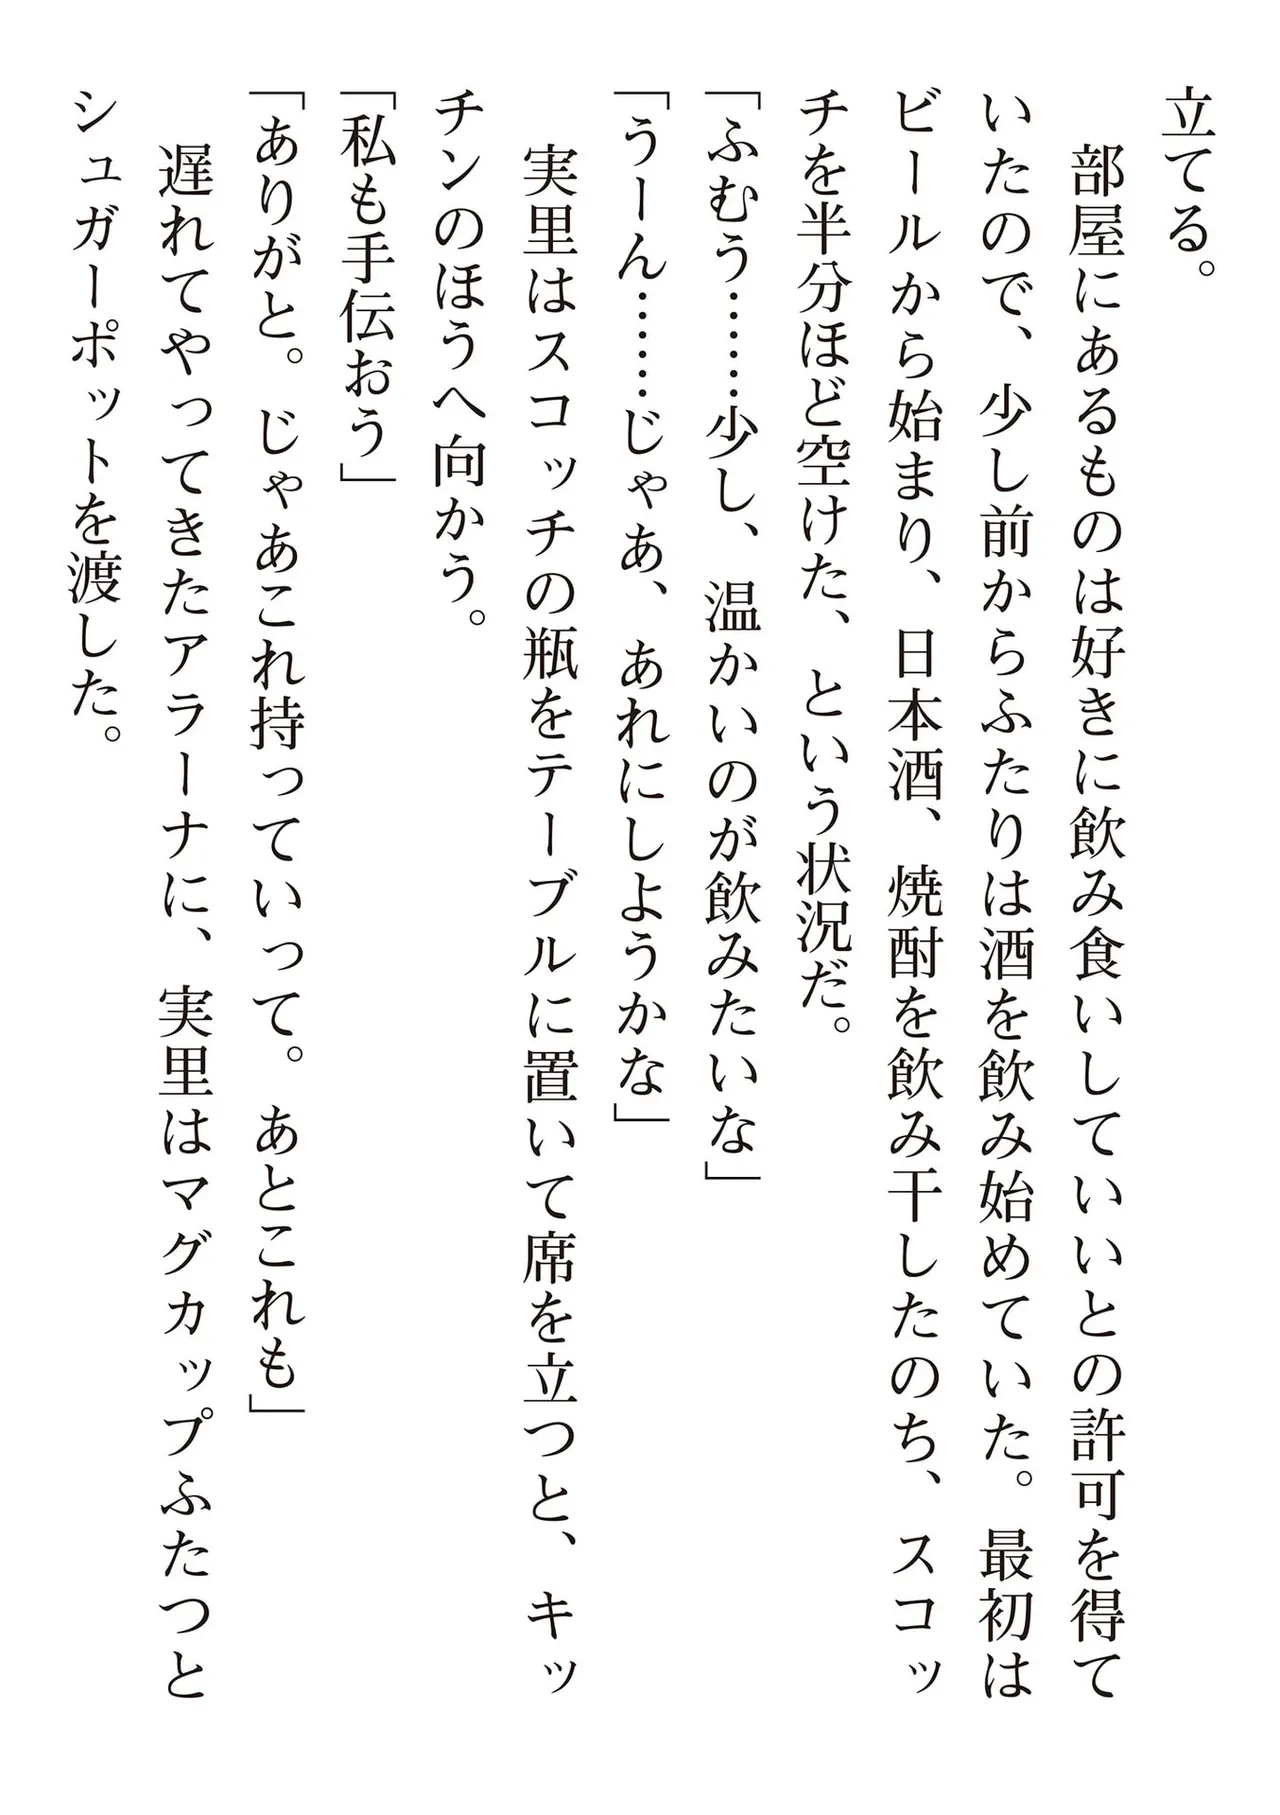 立てる。
　部屋にあるものは好きに飲み食いしていいとの許可を得て
いたので、少し前からふたりは酒を飲み始めていた。最初は
ビールから始まり、日本酒、焼酎を飲み干したのち、スコッ
チを半分ほど空けた、という状況だ。
「ふむう………少し、温かいのが飲みたいな」
「うーん………じゃあ、あれにしようかな」
　実里はスコッチの瓶をテーブルに置いて席を立つと、キッ
チンのほうへ向かう。
「私も手伝おう」
「ありがと。じゃあこれ持っていって。あとこれも」
　遅れてやってきたアラーナに、実里はマグカップふたつと
シュガーポットを渡した。